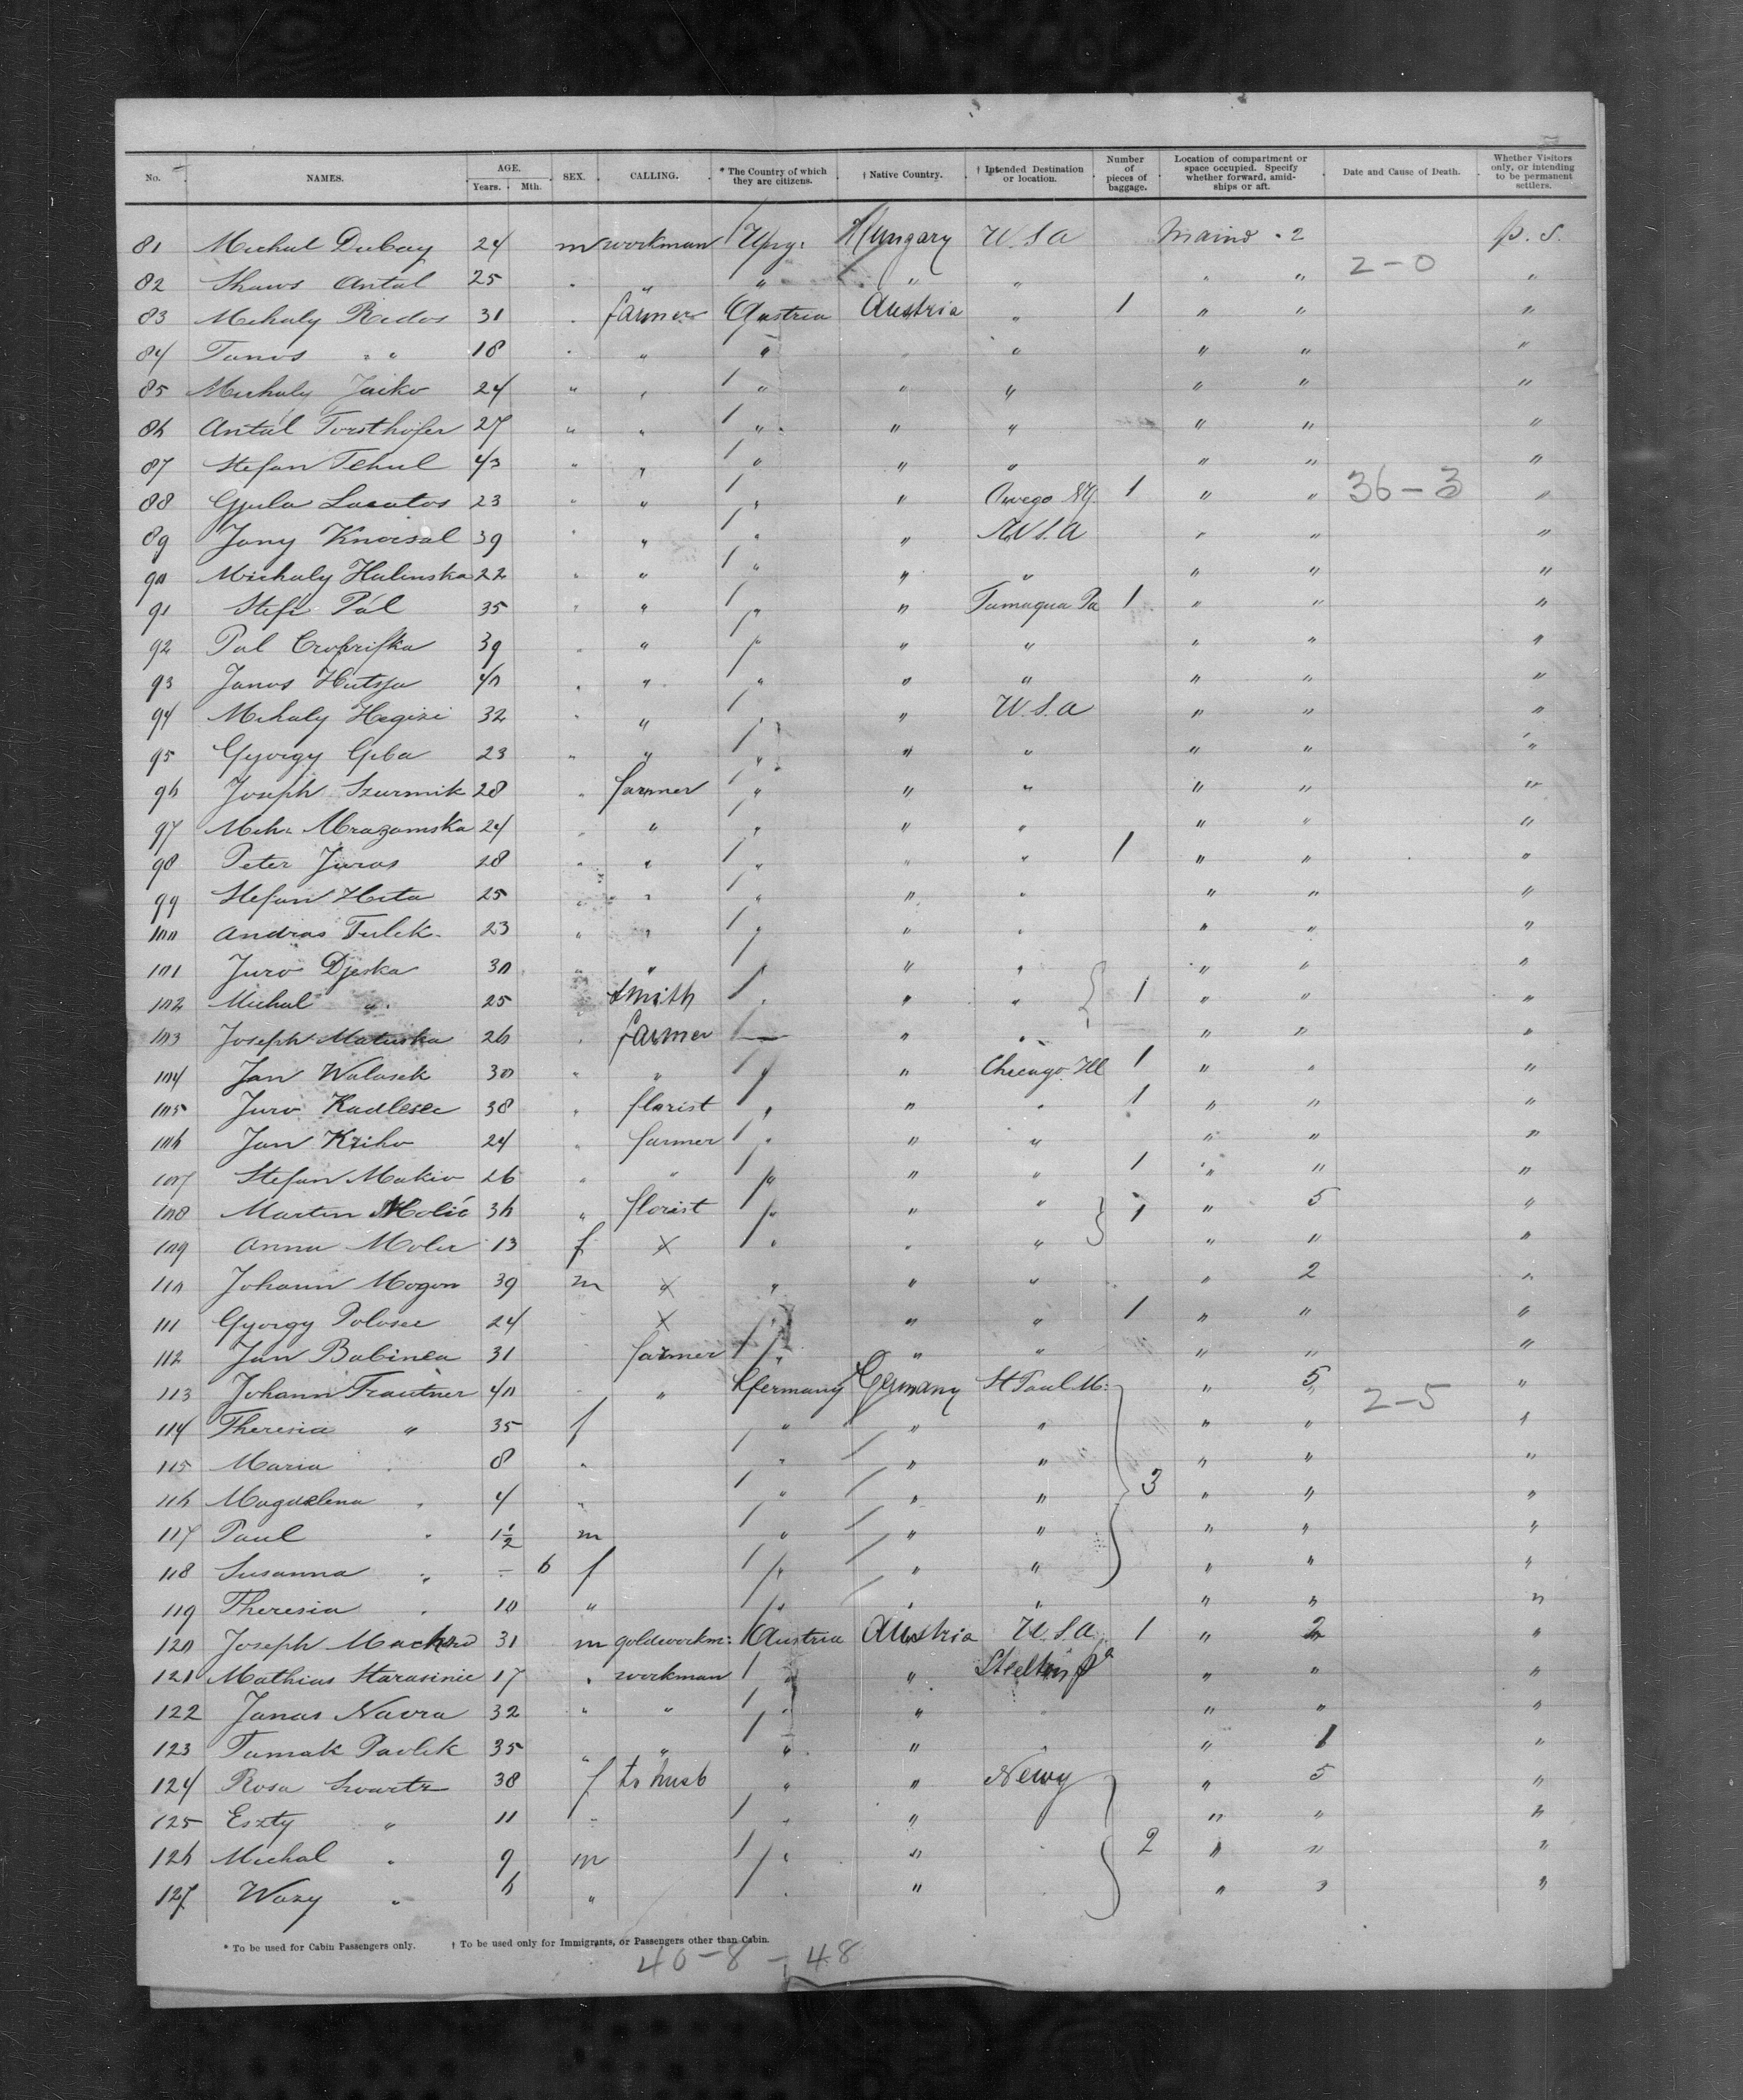 No. NAMES. AGE. Years. Mth. SEX. CALLING. * The Country of which they are citizens. † Native Country. † Intended Destination or location. Number of pieces of baggage. Location of compartment or space occupied. Specify whether forward, amid-ships or aft. Date and Cause of Death. Whether Visitors only, or intending to be permanent settlers.
81 Michal Dubay 24 m workman Hungary U.S.A 2 p.s.
2-0
82 Antal 25 " " " " " "
83 Mihaly Redos 31 " farmer Austria Austria " 1 " " "
84 " " 18 " " " " " " "
85 Michaly Jaiko 24 " " " " " " " "
86 Antal Torsthofer 27 " " " " " " " "
87 Stefan 43 " " " " " " " "
88 Gyula Lacatos 23 " " " " Owego NY. 1 " " 36-3 "
89 Jany 39 " " " " U.S.A " " "
90 Michaly Halinska 22 " " " " " " " "
91 Stefi Pál 35 " " " " Tamaqua Pa 1 " " "
92 Pal 39 " " " " " " " "
93 Janos 40 " " " " " " " "
94 Mihaly Hegisi 32 " " " " U.S.A " " "
95 Gyorgy 23 " " " " " " " "
96 Joseph Szurmik 28 " farmer " " " " " "
97 24 " " " " " " " "
98 Peter Juras 28 " " " " " 1 " " "
99 Stefan 25 " " " " " " " "
100 Andras Tulek 23 " " " " " " " "
101 Juro Djeska 30 " " " " " " " "
102 Michal " 25 " smith " " " 1 " " "
103 Joseph Matuska 26 " farmer — " " " " "
104 Jan Walasek 30 " " " " Chicago. Ill 1 " " "
105 Juro Kadlecec 38 " florist " " " 1 " " "
106 Jan 24 " farmer " " " " " "
107 Stefan 26 " " " " " 1 " " "
108 Martin Molic 36 " florist " " " 1 " 5 "
109 Anna 13 f x " " " " " "
110 Johann Mogon 39 m x " " " " 2 "
111 Gyorgy 24 x " " " 1 " " "
112 Jan Babinca 31 farmer " " " " " "
113 Johann Trautner 40 " " Germany Germany St Paul M: " 5 2-5 "
114 Theresia " 35 f " " " " " "
115 Maria " 8 " " " " " " "
116 Magdalena " 4 " " " " 3 " " "
117 Paul " 1½ m " " " " " "
118 Susanna " - 6 f " " " " " "
119 Theresia " 10 " " " " " " "
120 Joseph 31 m goldworkm: Austria Austria U.S.A. 1 " 2 "
121 Mathias Starasinic 17 " workman " " Steelton Pa " " "
122 Janas Navra 32 " " " " " " "
123 Pavlek 35 " " " " " 1 "
124 Rosa 38 f to husb " " " 5 "
125 Eszty " 11 " " " " " "
126 Michal " 9 m " " 2 " " "
127 " 6 " " " " " "
* To be used for Cabin Passengers only. † To be used only for Immigrants, or Passengers other than Cabin.
40-8-48